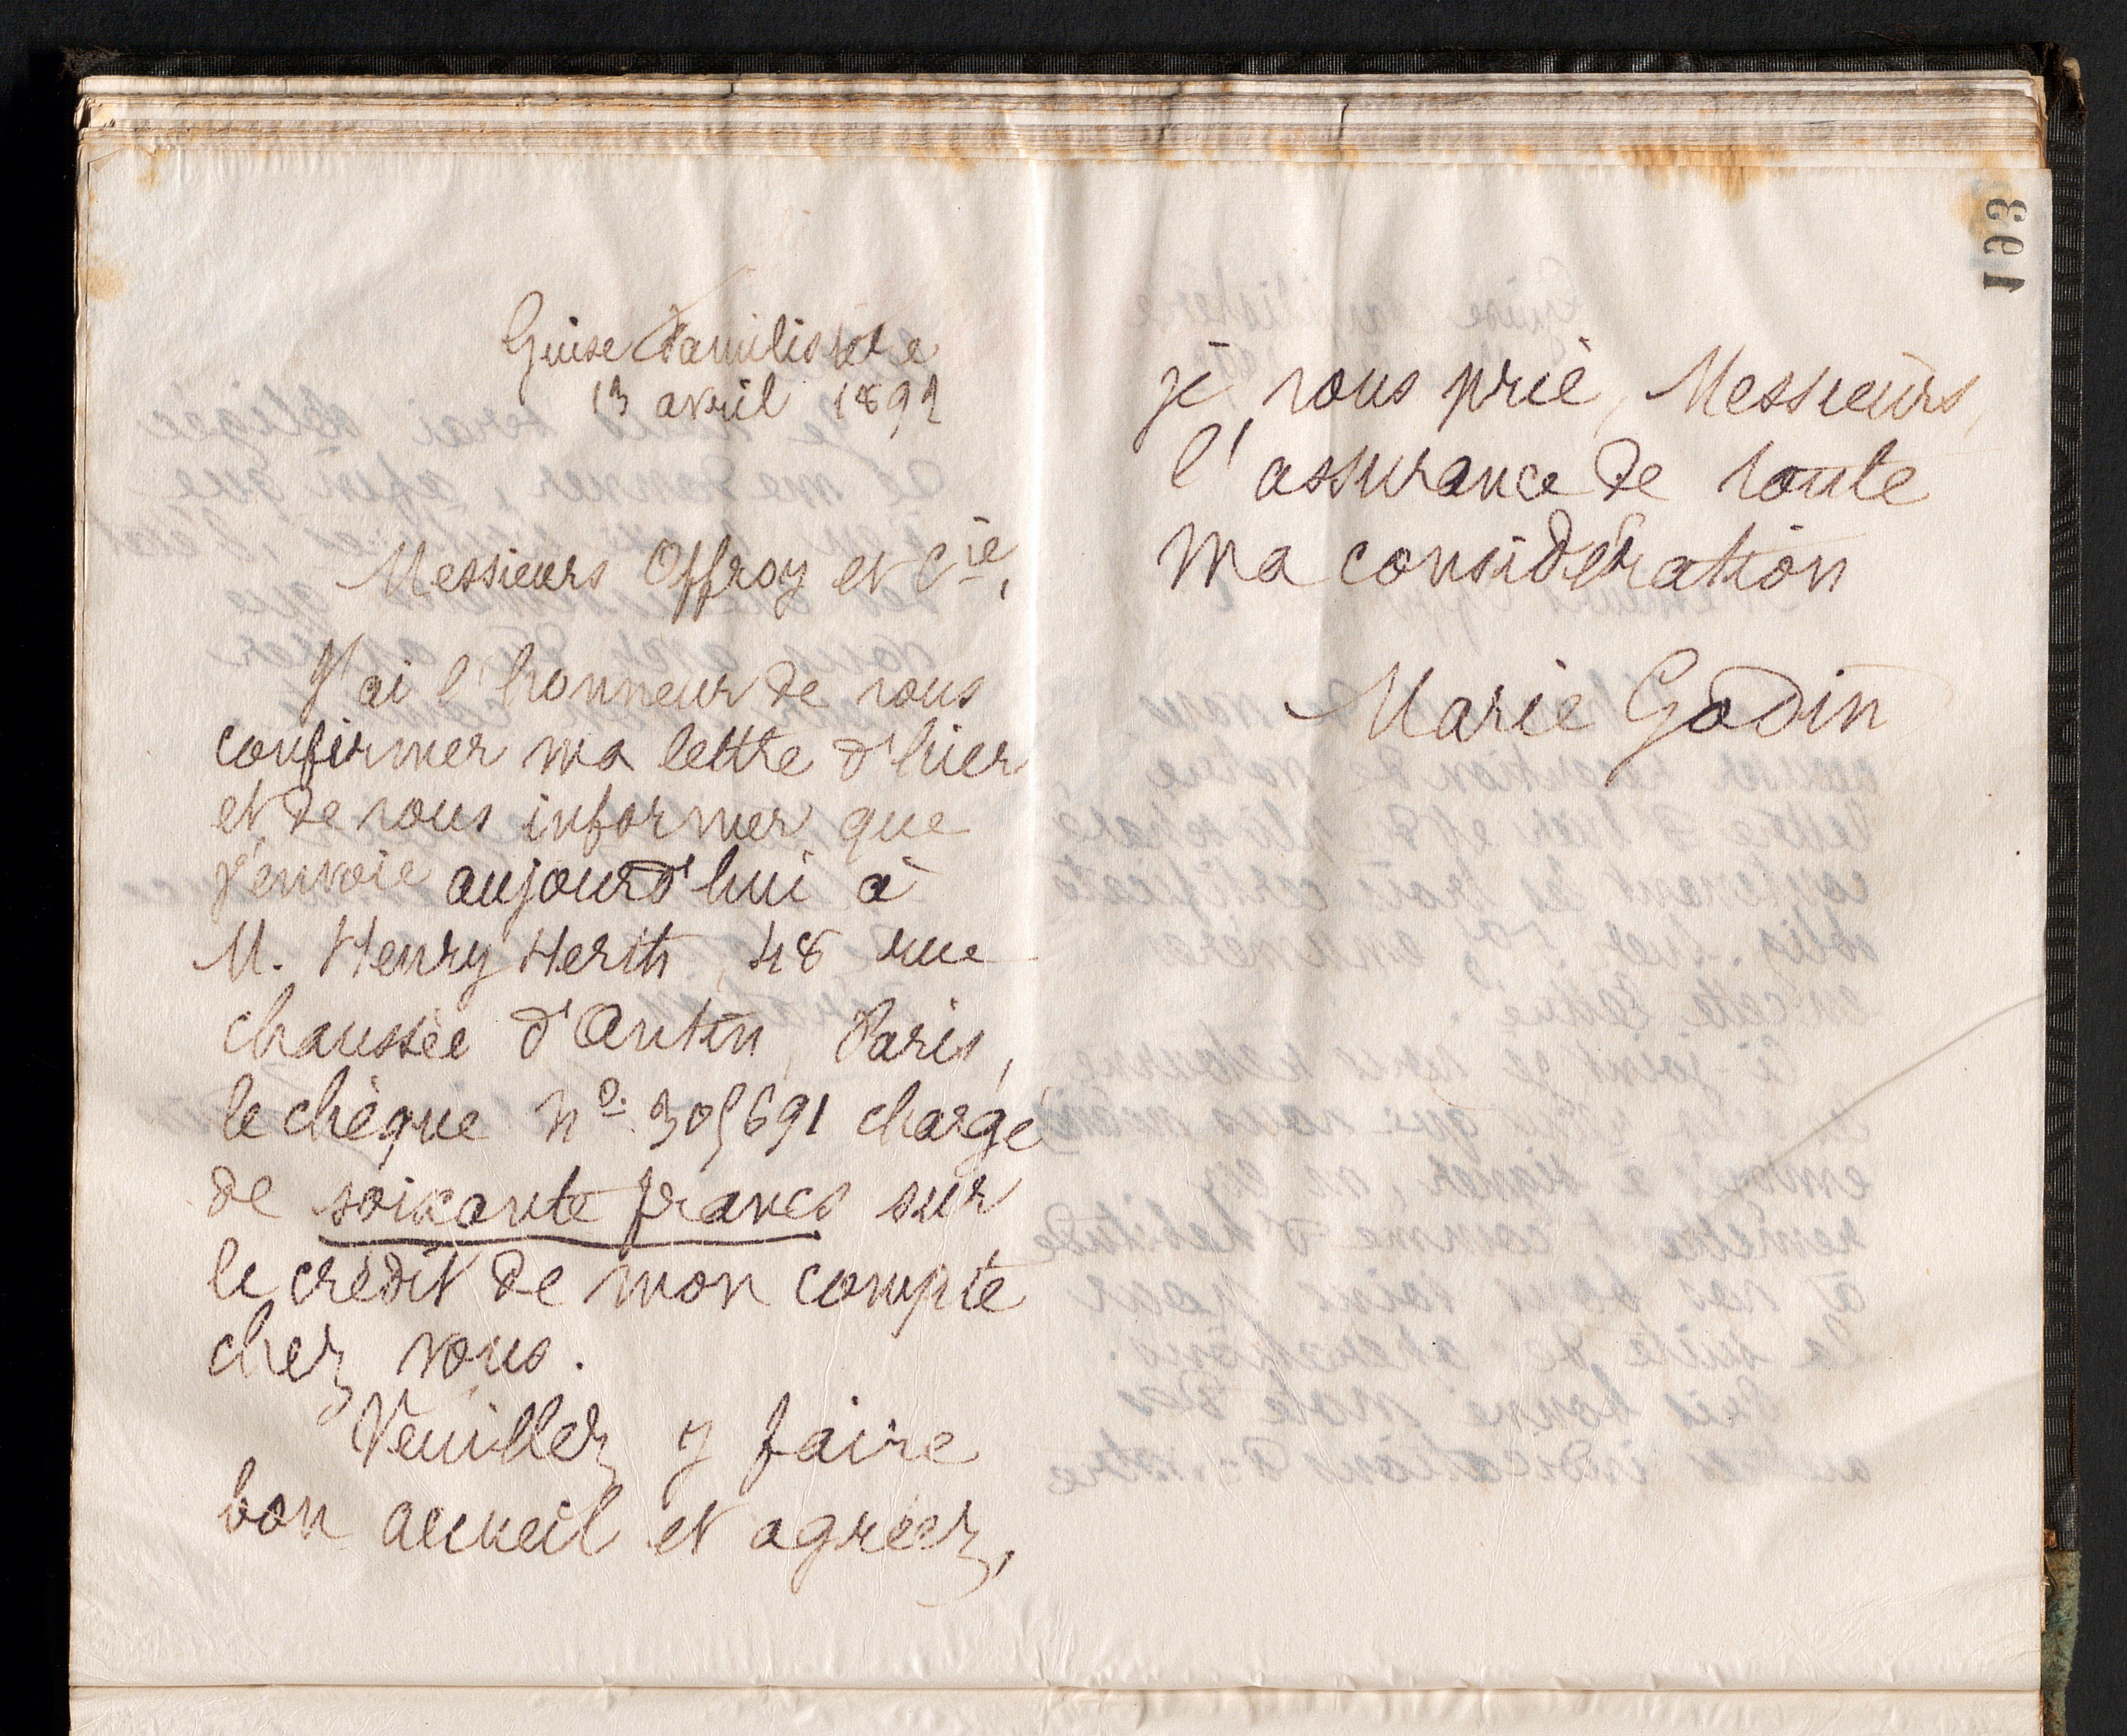 Guise Familistère
13 avril 1892
Messieurs Offroy et Cie,
J'ai l'honneur de vous
confirmer ma lettre d'hier
et de vous informer que
j'envoie aujourd'hui à
M. Henry Herth 48 rue
chaussée d'Antin, Paris,
le chèque No. 305691 chargé
de soixante francs sur
le crédit de mon compte
chez vous.
Veuillez y faire
bon accueil et agréez,
193
je vous prie, Messieurs,
l'assurance de toute
ma considération
Marie Godin